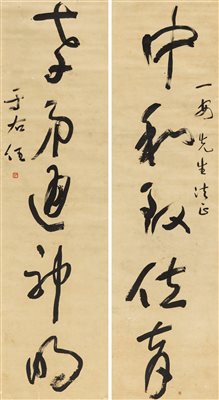 先生法正
中和致位育
孝弟通神明
于右任